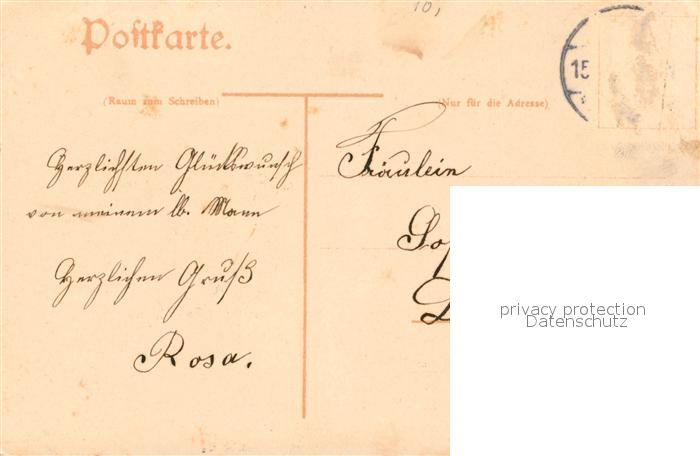 10,
Postkarte.
15
(Raum zum Schreiben)
(Nur für die Adresse)
Herzlichsten Glückwunsch
von meinem lb. Mann
Herzlichen Gruß
Rosa.
Fräulein
Sof
privacy protection
Datenschutz